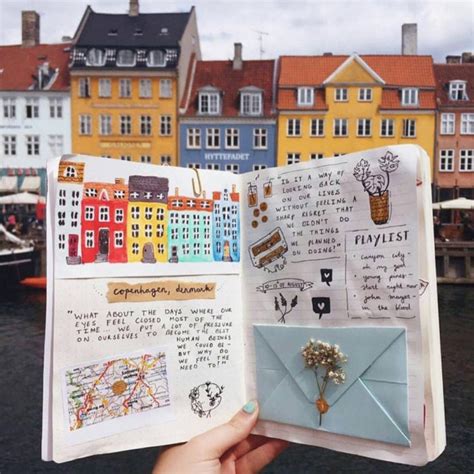 HYTTEFADET
copenhagen, denmark
"WHAT ABOUT THE DAYS WHERE OUR
EYES FEEL CLOSED MOST OF THE
TIME... WE PUT A LOT OF PRESSURE
ON OURSELVES TO BECOME THE BEST
HUMAN BEINGS
WE COULD BE-
BUT WHY DO
WE FEEL THE
NEED TO?"
"IS IT A WAY OF
LOOKING BACK
ON OUR LIVES
WITHOUT FEELING A
SHARP REGRET THAT
WE DIDN'T DO
THE THINGS
WE PLANNED
ON DOING?"
PLAYLIST
canyon city
oh my god
young
start right now
john mayer
in the blood